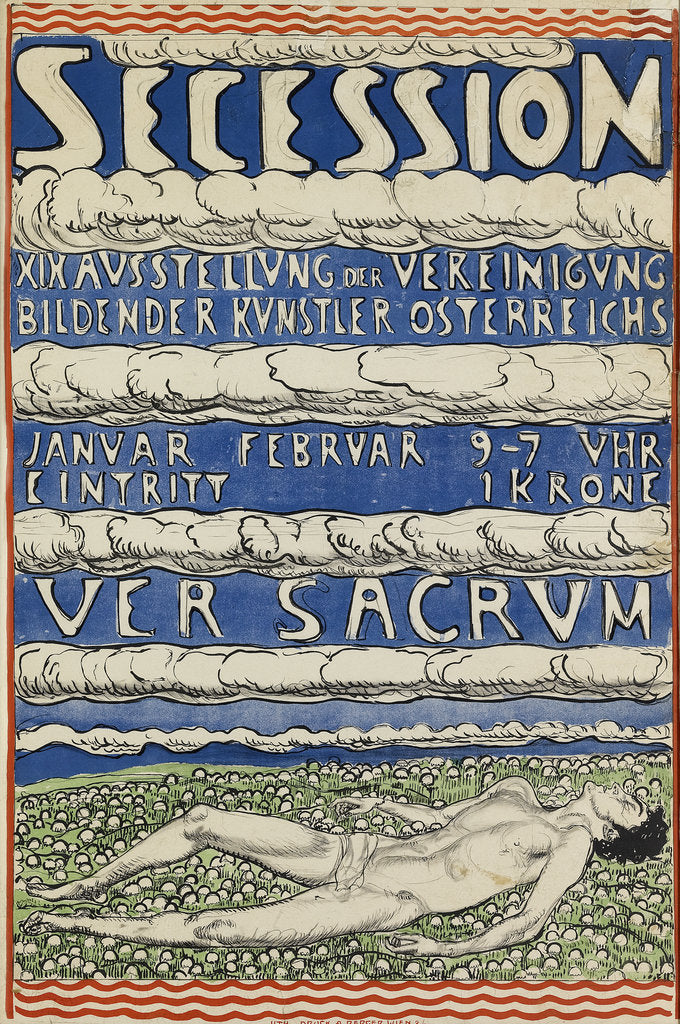 SECESSION
XIX AVSSTELLVNG DER VEREINIGVNG
BILDENDER KVNSTLER OSTERREICHS
JANVAR FEBRVAR 9-7 VHR
EINTRITT 1 KRONE
VER SACRVM
DRUCK A. BERGER WIEN